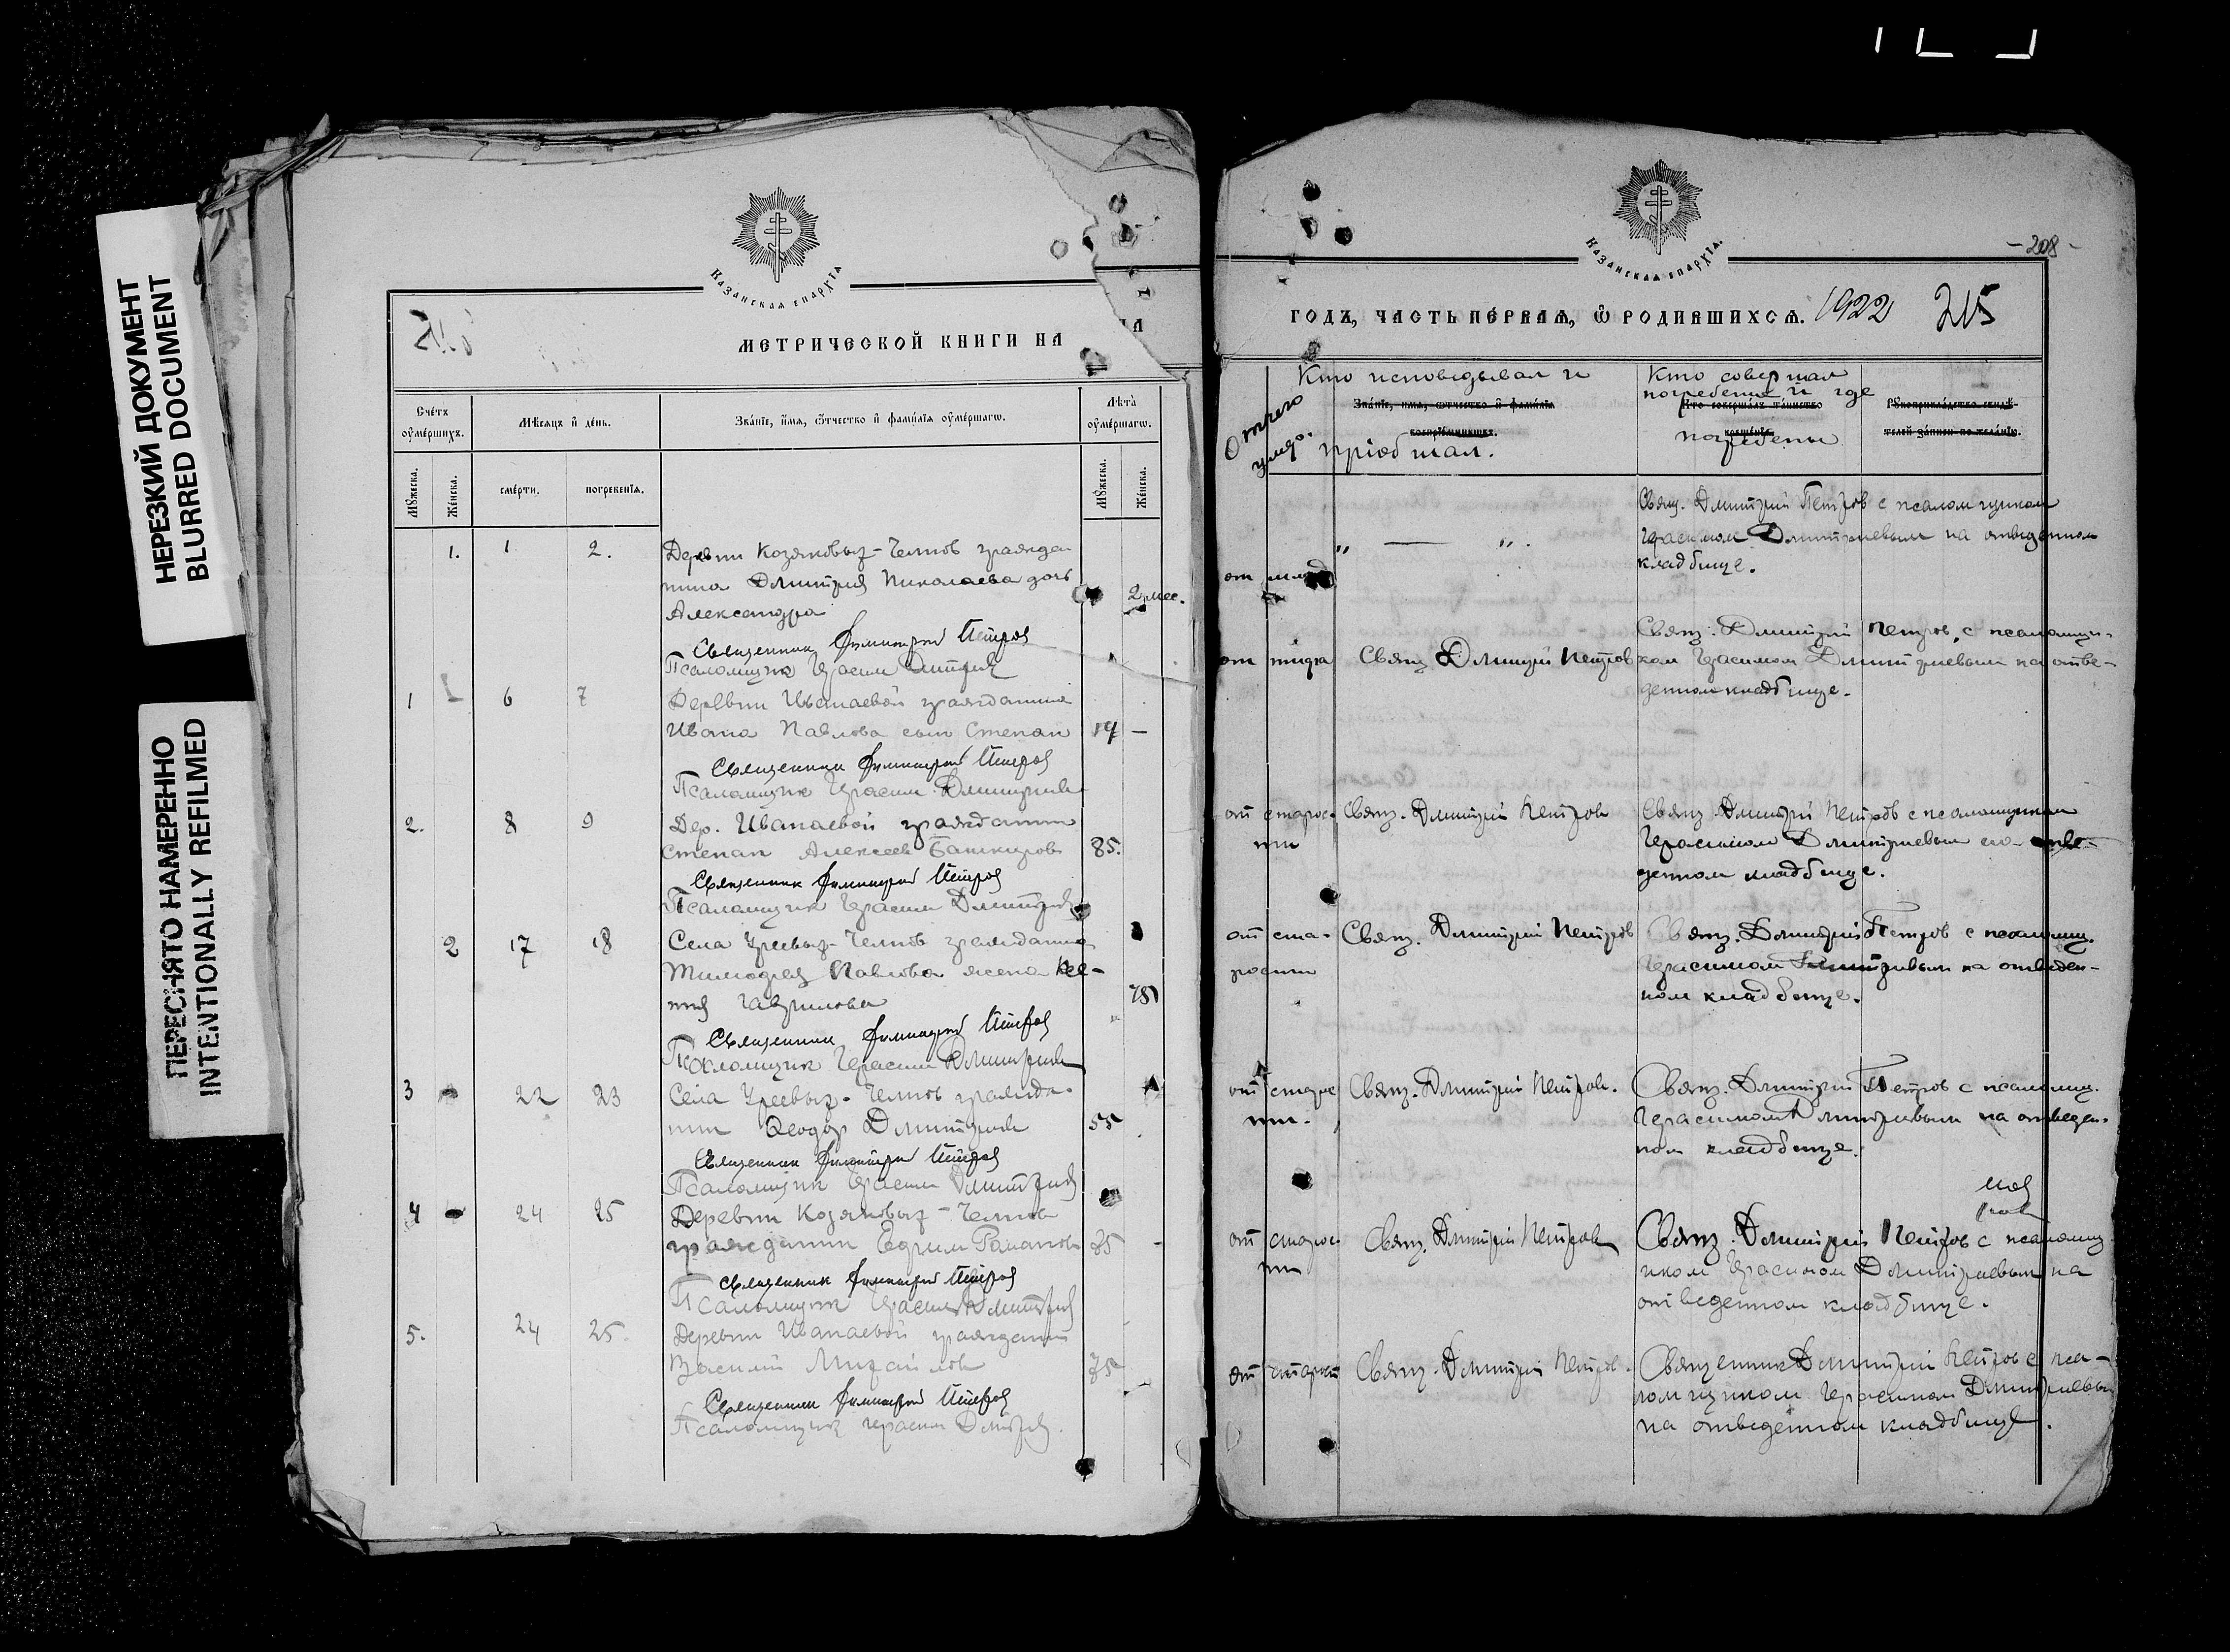 НЕРЕЗКИЙ ДОКУМЕНТ
BLURRED DOCUMENT
ПЕРЕСНЯТО НАМЕРЕННО
INTENTIONALLY REFILMED
Казанская епархїа.
МЕТРИЧЕСКОЙ КНИГИ НА
Счétъ оу҆ме́ршихъ.
Мѣсяцъ и҆ де́нь.
Зва́нїе, и҆́мя, ѻ҆́тчество и҆ фами́лїа оу҆ме́ршагѡ.
Лѣ́та оу҆ме́ршагѡ.
Мꙋ́жеска.
Же́нска.
сме́рти.
погребе́нїѧ.
Мꙋ́жеска.
Же́нска.
1. 1 2. Деревни Козяковых-Челнов гражда
нина Дмитрия Николаева дочь
2 мес.
Александра
Священник Димитрий Петров
Псаломщик Герасим Дмитриев
1 6 7 Деревни Иванаевой гражданина
Ивана Павлова сын Степан 14 —
Священник Димитрий Петров
Псаломщик Герасим Дмитриев
2. 8 9 Дер. Иванаевой гражданин
Степан Алексеев Башкиров 85.
Священник Димитрий Петров
Псаломщик Герасим Дмитриев
2 17 18 Села Уреевых-Челнов гражданина
Тимофея Павлова жена Ксе-
ния Гаврилова 78
Священник Димитрий Петров
Псаломщик Герасим Дмитриев
3 22 23 Села Уреевых-Челнов гражда-
нин Феодор Дмитриев 55
Священник Димитрий Петров
Псаломщик Герасим Дмитриев
4 24 25 Деревни Козяковых-Челнов
гражданин Ефрем 85 -
Священник Димитрий Петров
Псаломщик Герасим Дмитриев
5. 24 25 Деревни Иванаевой гражданин
Василий Михайлов 75
Священник Димитрий Петров
Псаломщик Герасим Дмитриев
Казанская епархїа.
- 208 -
ГОДЪ, ЧАСТЬ ПЕ́РВАѦ, Ѽ РОДИВШИХСѦ. 1922 215
Отчего умер.
Кто исповедывал и
Зва́нїе, и҆мѧ, ѻ҆́тчество и҆ фами́лїѧ
воспрїе́мникѡвъ.
пріобщал.
Кто совершал
погребение и где
Кто̀ соверша́лъ та́инство
креще́нїѧ.
погребены
Рꙋкоприкла́дство свидѣ́-
телей за́писи по жела́нїю.
„ — „.
Свящ. Дмитрий Петров с псаломщиком
Герасимом Дмитриевым на отведенном
кладбище.
от
от тифа Свящ Дмитрий Петров
Свящ. Дмитрий Петров, с псаломщи-
ком Герасимом Дмитриевым на отве-
денном кладбище.
от старос-
ти
Свящ. Дмитрий Петров
Свящ Дмитрий Петров с псаломщиком
Герасимом Дмитриевым на отве-
денном кладбище.
от ста-
рости
Свящ. Дмитрий Петров
Свящ. Дмитрий Петров с псаломщ.
Герасимом Дмитриевым на отведен-
ном кладбище.
от старос
ти.
Свящ. Дмитрий Петров.
Свящ. Дмитрий Петров с псаломщ.
Герасимом Дмитриевым на отведен-
ном кладбище.
от старос
ти
Свящ. Дмитрий Петров
Свящ. Дмитрий Петров с псаломщ
иком Герасимом Дмитриевым на
отведенном кладбище.
от старости Свящ. Дмитрий Петров.
Священник Дмитрий Петров с пса-
ломщиком Герасимом Дмитриевым
на отведенном кладбище.